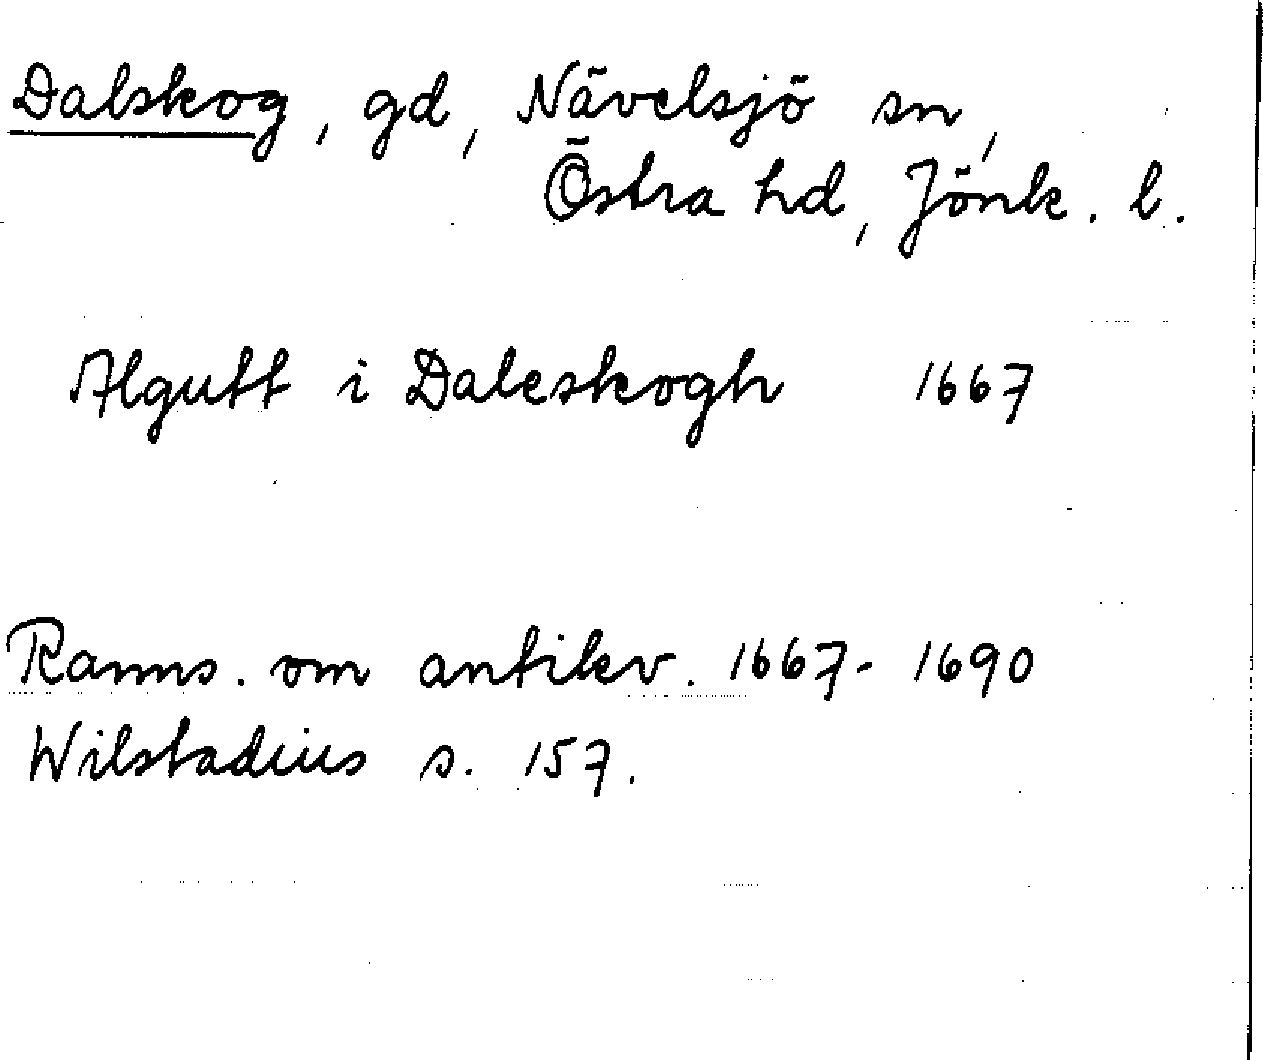 Dalskog, gd, Nävelsjö sn,
Östra hd, Jönk. l.
Algutt i Daleskogh 1667
Ranns. om antikv. 1667-1690
Wilstadius s. 157.